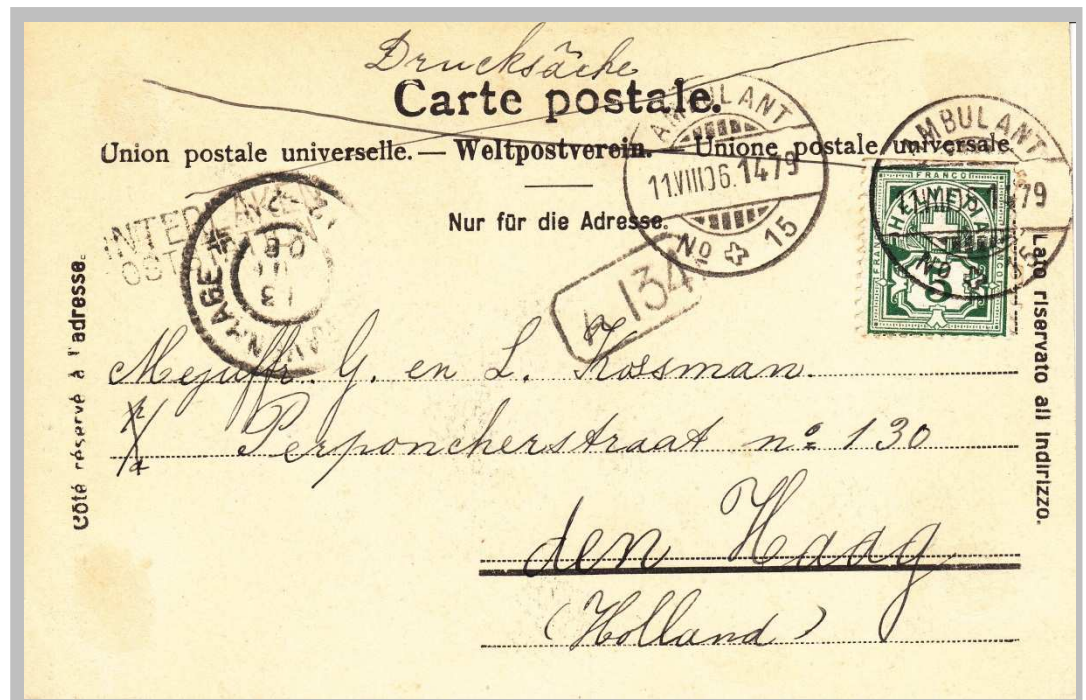 Drucksäche
Carte postale.
Union postale universelle. — Weltpostverein. — Unione postale universale
Nur für die Adresse.
AMBULANT
11.VIII 06. 1479
No 15
AMBULANT
1479
No
FRANCO
HELVETIA
FRANCO
FRANCO
5
INTERLAKEN
OST
HAGE
134
Côté réservé à l'adresse.
Lato riservato all indirizzo.
Mejuffr. G. en L. Kossman.
Perponcherstraat no 130
den Haag
(Holland)